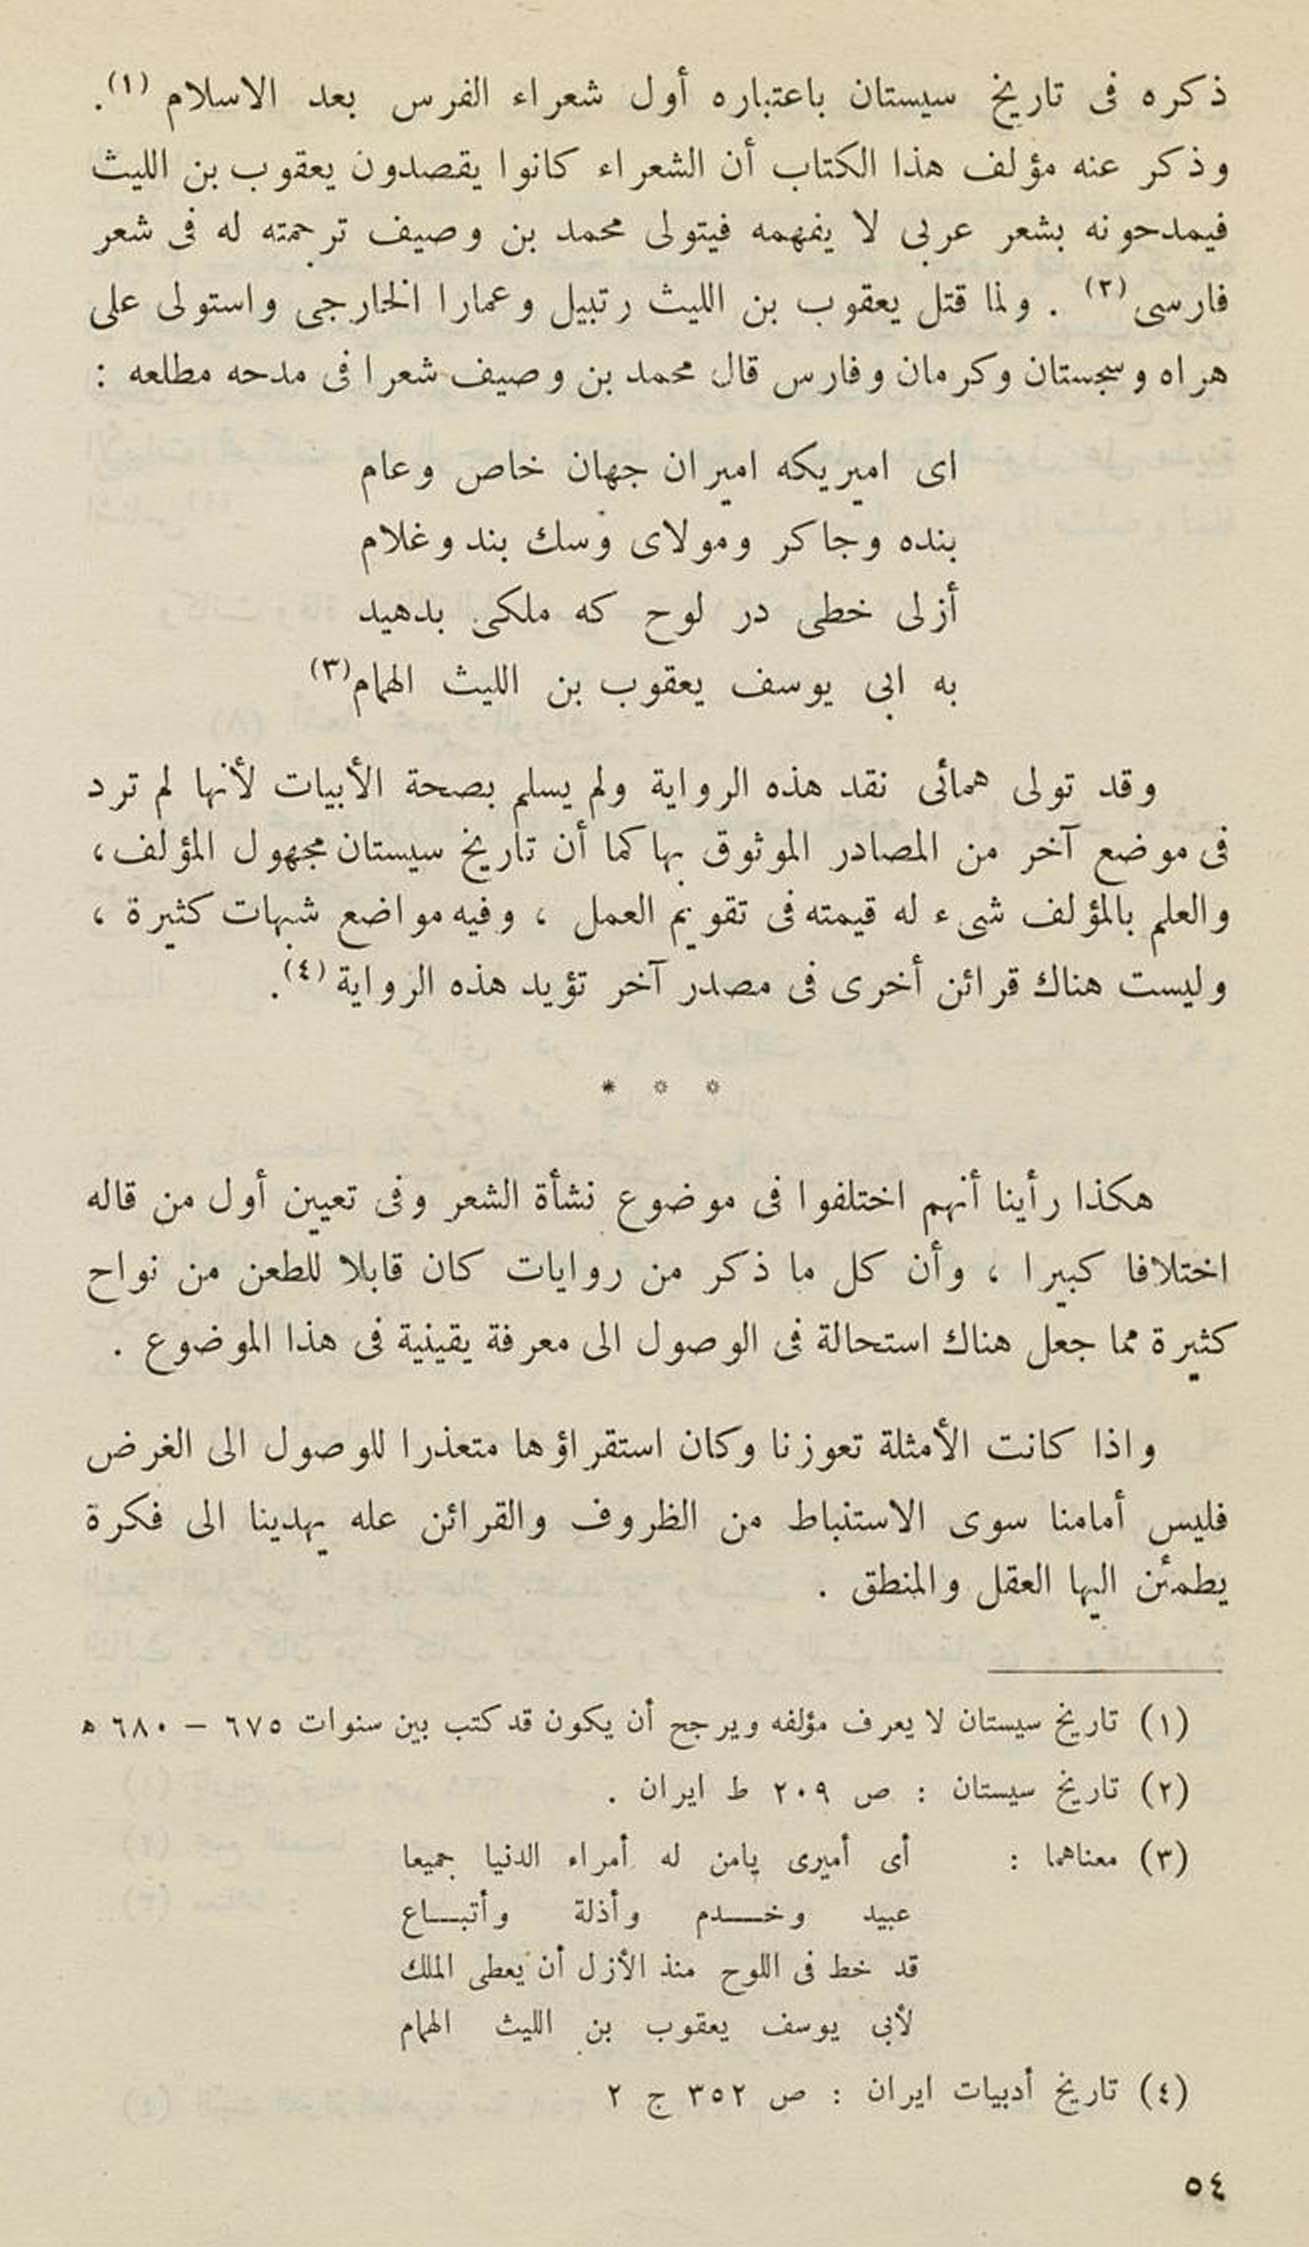 ذكره فى تاريخ سيستان باعتباره أول شعراء الفرس بعد الاسلام (١).
وذكر عنه مؤلف هذا الكتاب أن الشعراء كانوا يقصدون يعقوب بن الليث
فيمدحونه بشعر عربى لا يفهمه فيتولى محمد بن وصيف ترجمته له فى شعر
فارسى (٢) . ولما قتل يعقوب بن الليث رتبيل وعمارا الخارجى واستولى على
هراه وسجستان وكرمان وفارس قال محمد بن وصيف شعرا فى مدحه مطلعه :
اى اميريكه اميران جهان خاص وعام
بنده وجاكر ومولاى وسك بند وغلام
أزلى خطى در لوح كه ملكى بدهيد
به ابى يوسف يعقوب بن الليث الهمام (٣)
وقد تولى همائى نقد هذه الرواية ولم يسلم بصحة الأبيات لأنها لم ترد
فى موضع آخر من المصادر الموثوق بها كما أن تاريخ سيستان مجهول المؤلف ،
والعلم بالمؤلف شىء له قيمته فى تقويم العمل ، وفيه مواضع شبهات كثيرة ،
وليست هناك قرائن أخرى فى مصدر آخر تؤيد هذه الرواية (٤).
* * *
هكذا رأينا أنهم اختلفوا فى موضوع نشأة الشعر وفى تعيين أول من قاله
اختلافا كبيرا ، وأن كل ما ذكر من روايات كان قابلا للطعن من نواح
كثيرة مما جعل هناك استحالة فى الوصول الى معرفة يقينية فى هذا الموضوع .
واذا كانت الأمثلة تعوزنا وكان استقراؤها متعذرا للوصول الى الغرض
فليس أمامنا سوى الاستنباط من الظروف والقرائن عله يهدينا الى فكرة
يطمئن اليها العقل والمنطق .
(١) تاريخ سيستان لا يعرف مؤلفه ويرجح أن يكون قد كتب بين سنوات ٦٧٥ – ٦٨٠ هـ
(٢) تاريخ سيستان : ص ٢٠٩ ط ايران .
(٣) معناهما : أى أميرى يامن له أمراء الدنيا جميعا
عبيد وخـــدم وأذلة وأتبـــاع
قد خط فى اللوح منذ الأزل أن يعطى الملك
لأبى يوسف يعقوب بن الليث الهمام
(٤) تاريخ أدبيات ايران : ص ٣٥٢ ج ٢
٥٤